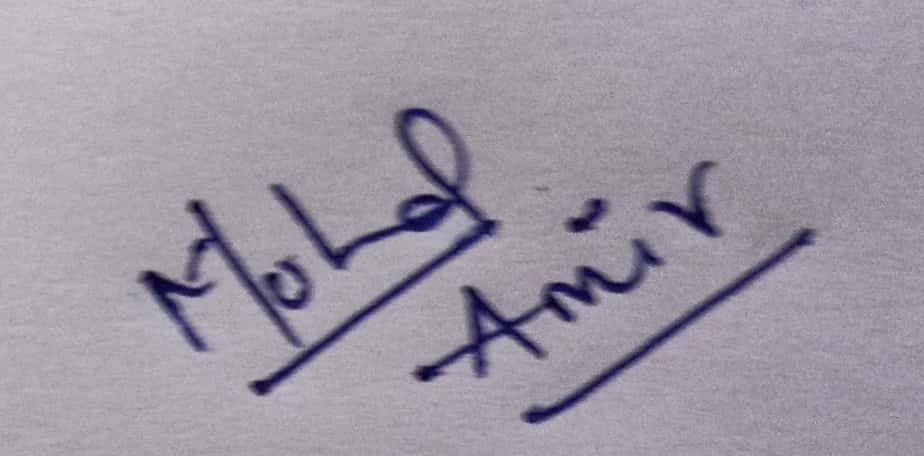 Mohd
Amir